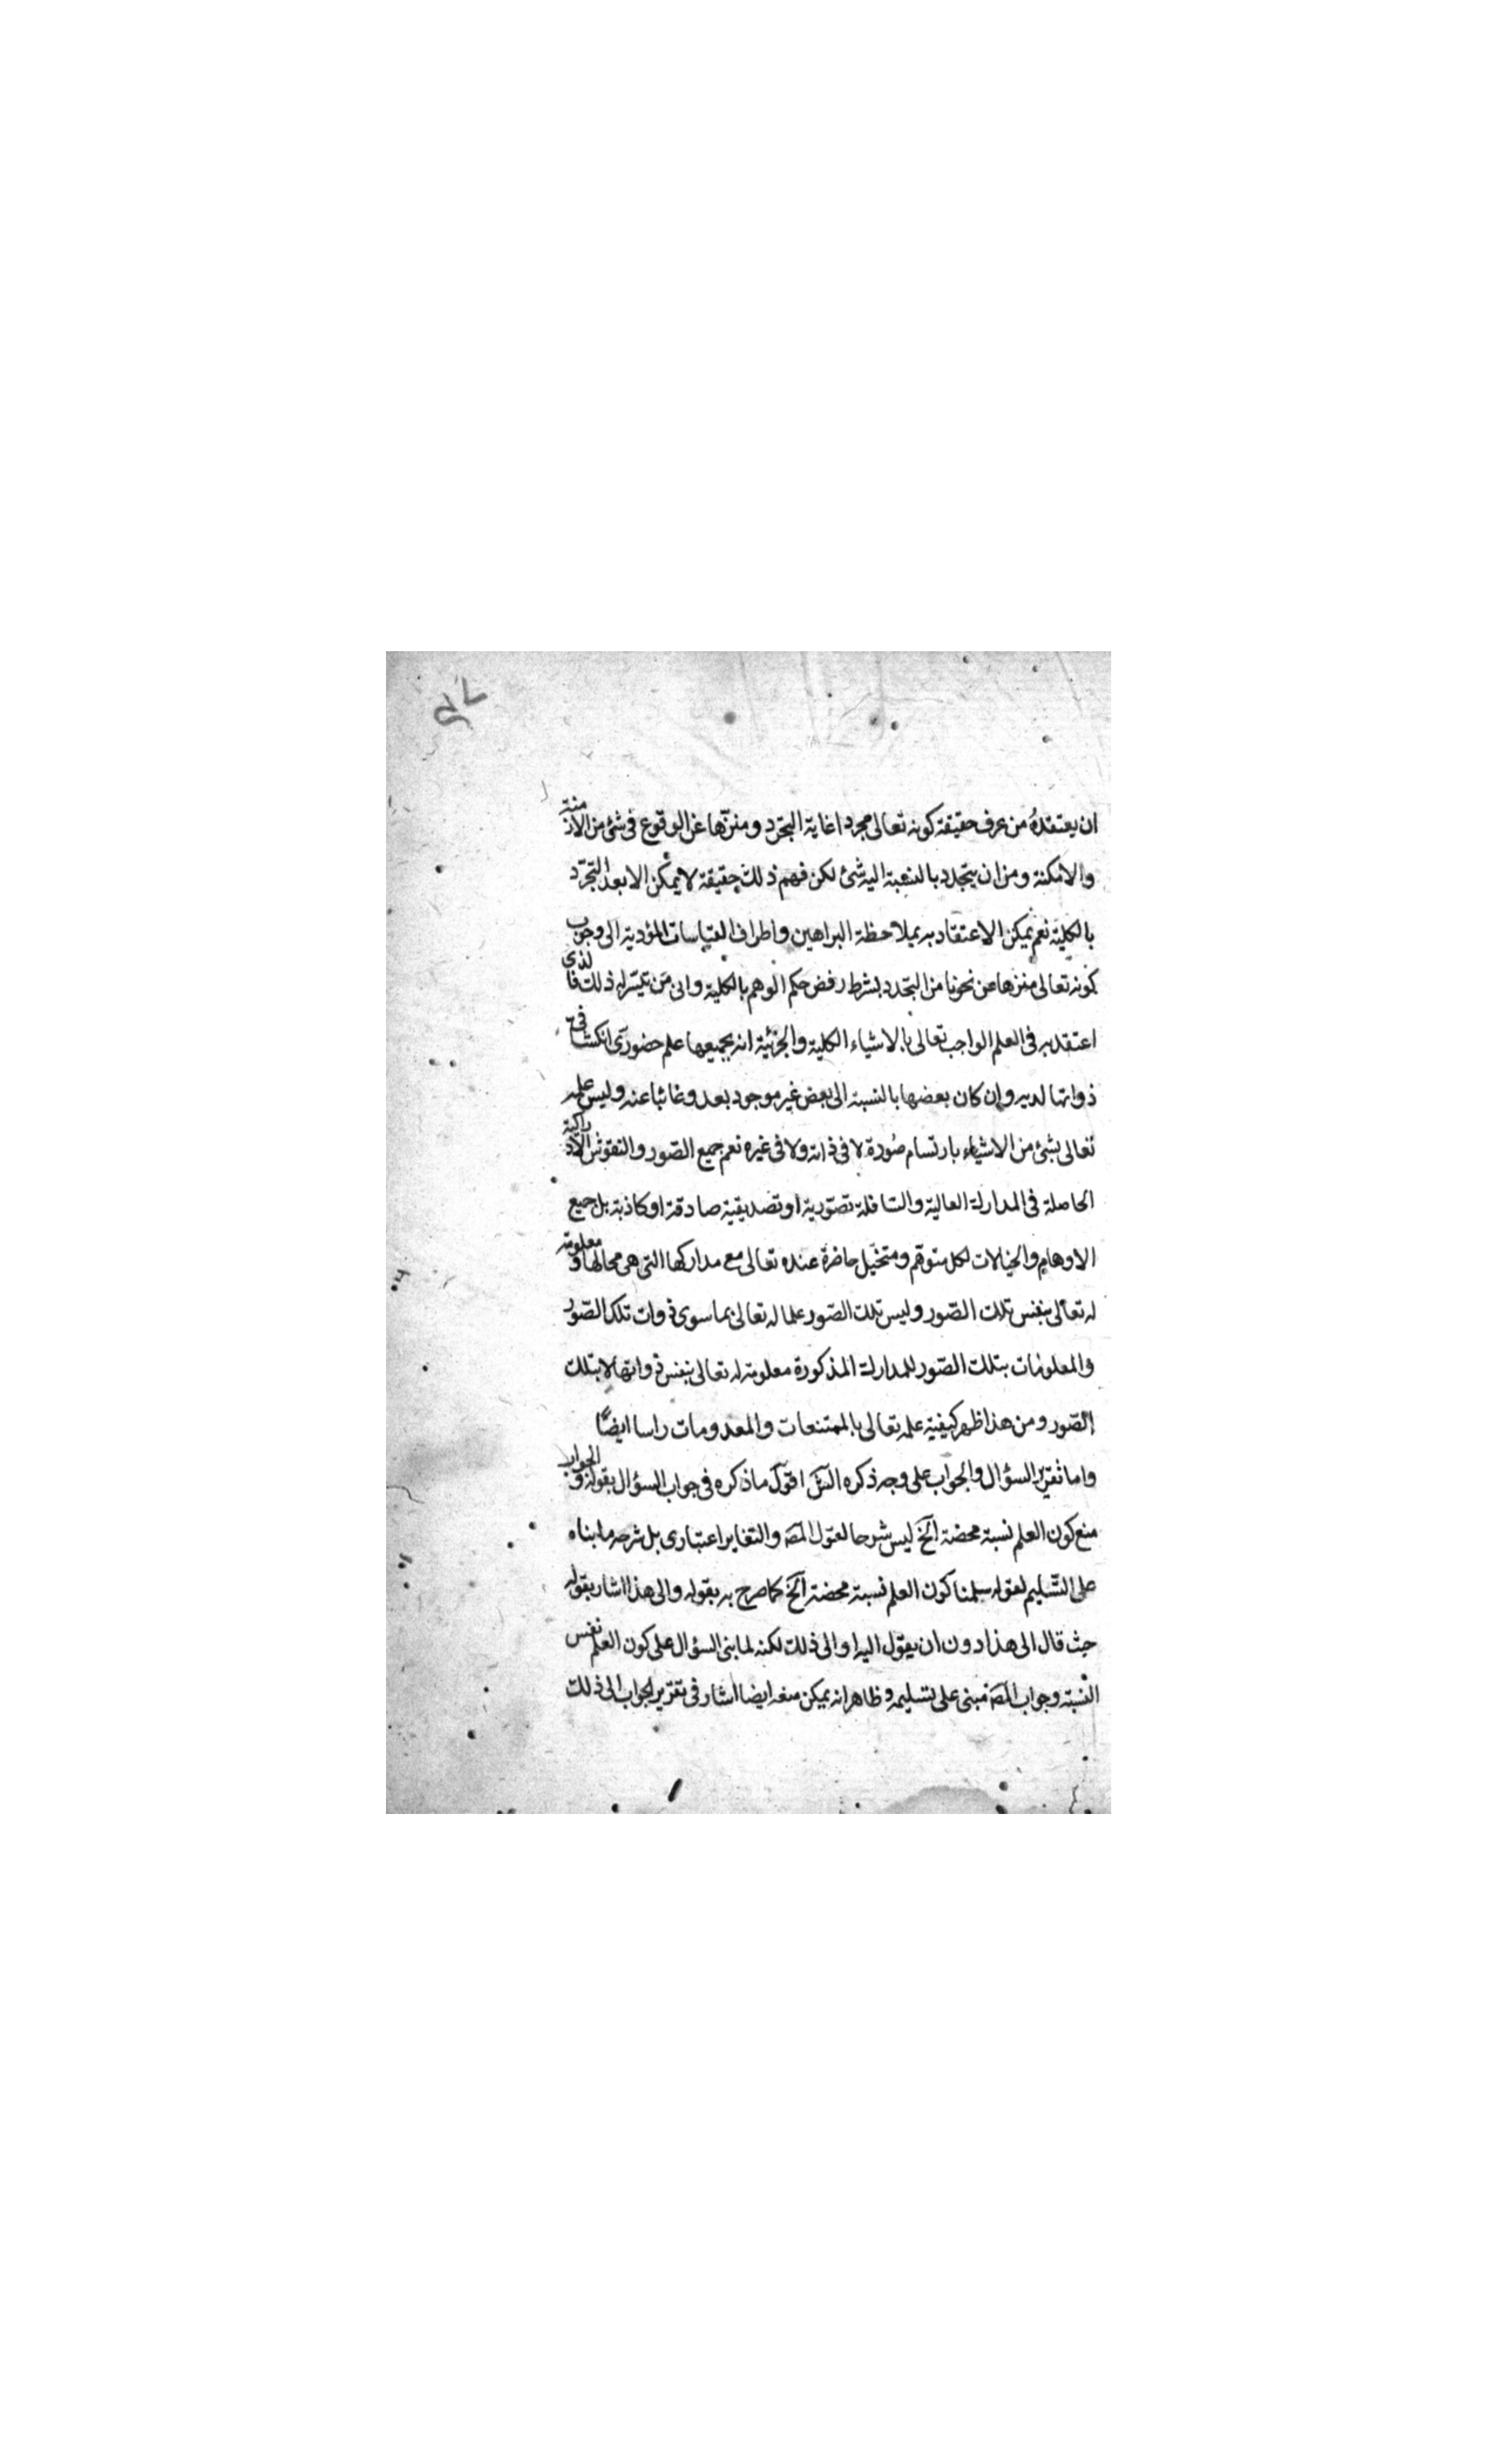 ان يعتقده من عرف حقيقة كونه تعالى مجردا غاية التجرد ومنزها عن الوقوع فى شئ من الازمنة
والامكنة ومن ان يتجدد بالنسبة اليه شئ لكن فهم ذلك حقيقة لا يمكن الا بعد التجرّد
بالكلية نعم يمكن الاعتقاد به بملاحظة البراهين واطراف القياسات المؤدية الى وجوب
كونه تعالى منزها عن نحونا من التجدد بشرط رفض حكم الوهم بالكلية وانى مَن تيسّر له ذلك فالذى
اعتقد به فى العلم الواجب تعالى بالاشياء الكلية والجزئية انه بجميعها علم حضورى انكشافى
ذواتها لديه وإن كان بعضها بالنسبة الى بعض غير موجود بعد وغائبا عنه وليس علمه
تعالى بشئ من الاشياء بارتسام صُورة لا فى ذاته ولا فى غيره نعم جميع الصّور والنقوش الادراكية
الحاصلة فى المدارك العالية والسافلة تصّورية او تصديقية صادقة او كاذبة بل جميع
الاوهام والخيالات لكل متوهّم ومتخيّل حاضرة عنده تعالى مع مداركها التى هى محالها ومعلومة
له تعالى بنفس تلك الصّور وليس تلك الصّور علما له تعالى بما سوى ذوات تلك الصّور
والمعلومات بتلك الصّور للمدارك المذكورة معلومة له تعالى بنفس ذواتها لا بتلك
الصّور ومن هذا ظهر كيفية علمه تعالى بالممتنعات والمعدومات راسا ايضًا
واما تقرير السؤال والجواب على وجه ذكره اقول ما ذكره فى جواب السؤال بقوله والجواب
منع كون العلم نسبة محضة الخ ليس شرحا لقول المص والتغاير اعتبارى بل شرحه ما بناه
على التّسليم لقوله سلمنا كون العلم نسبة محضة الخ كما صرح به بقوله والى هذا اشار بقوله
حيث قال الى هذا دون ان يقول اليه او الى ذلك لكنه لما بنى السؤال على كون العلم نفس
النسبة وجواب المص مبنى على تسليمه وظاهر انه يمكن منعه ايضا اشار فى تقرير الجواب الى ذلك